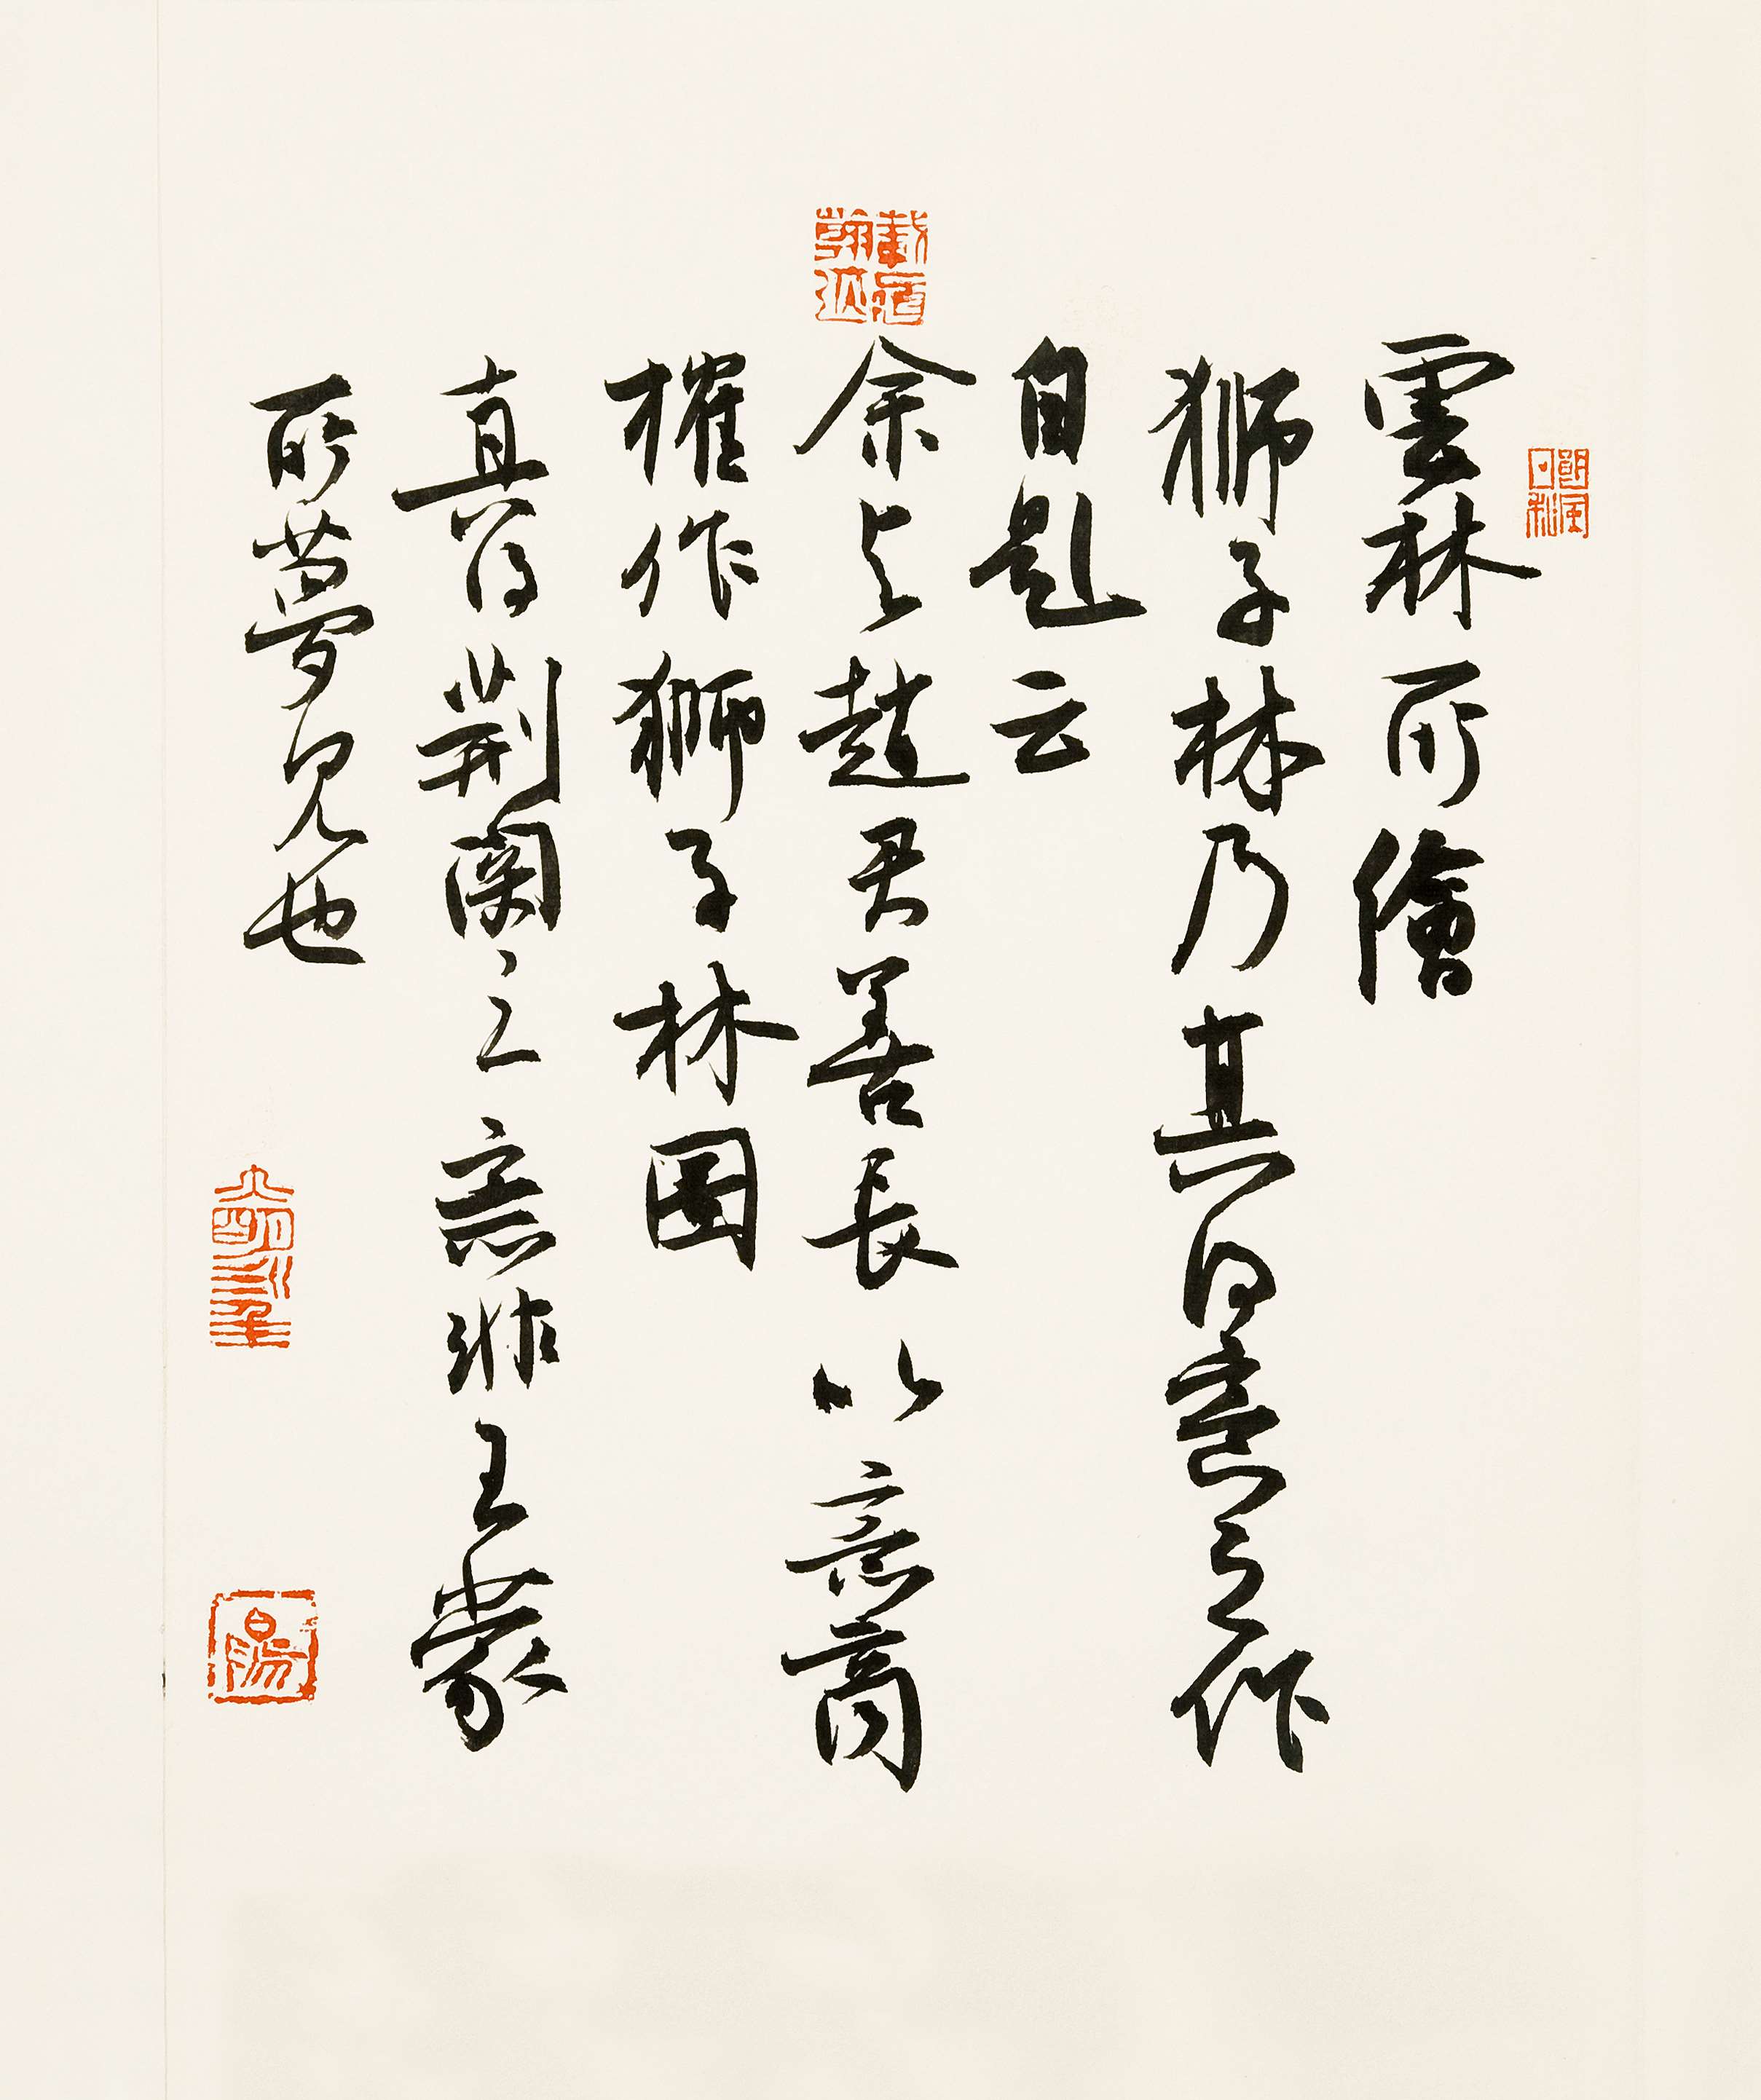 雲林所繪
獅子林乃其得意之作
自題云
余与趙君善長以意商
榷作獅子林圖
真得荆関之意非王蒙
所夢見也